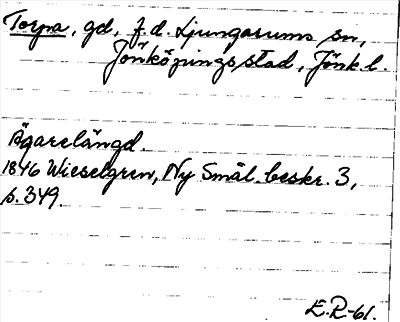 Torpa, gd, f.d. Ljungarums sn,
Jönköpings stad, Jönk.l.
Ägarelängd.
1846 Wieselgren, Ny Smål. beskr. 3,
s. 349.
E.R-61.